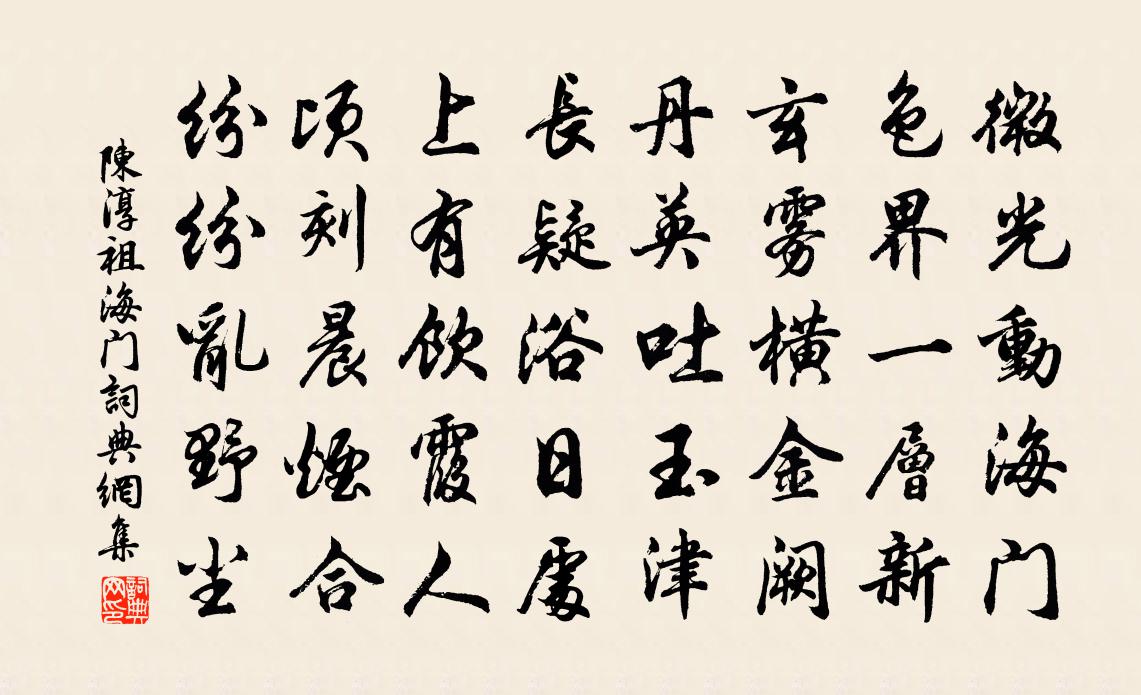 微光動海门
色界一層新
玄雾橫金阙
丹英吐玉津
長疑浴日處
上有飲霞人
頃刻晨煙合
纷纷亂野尘
陳淳祖海门詞典網集
詞典网印